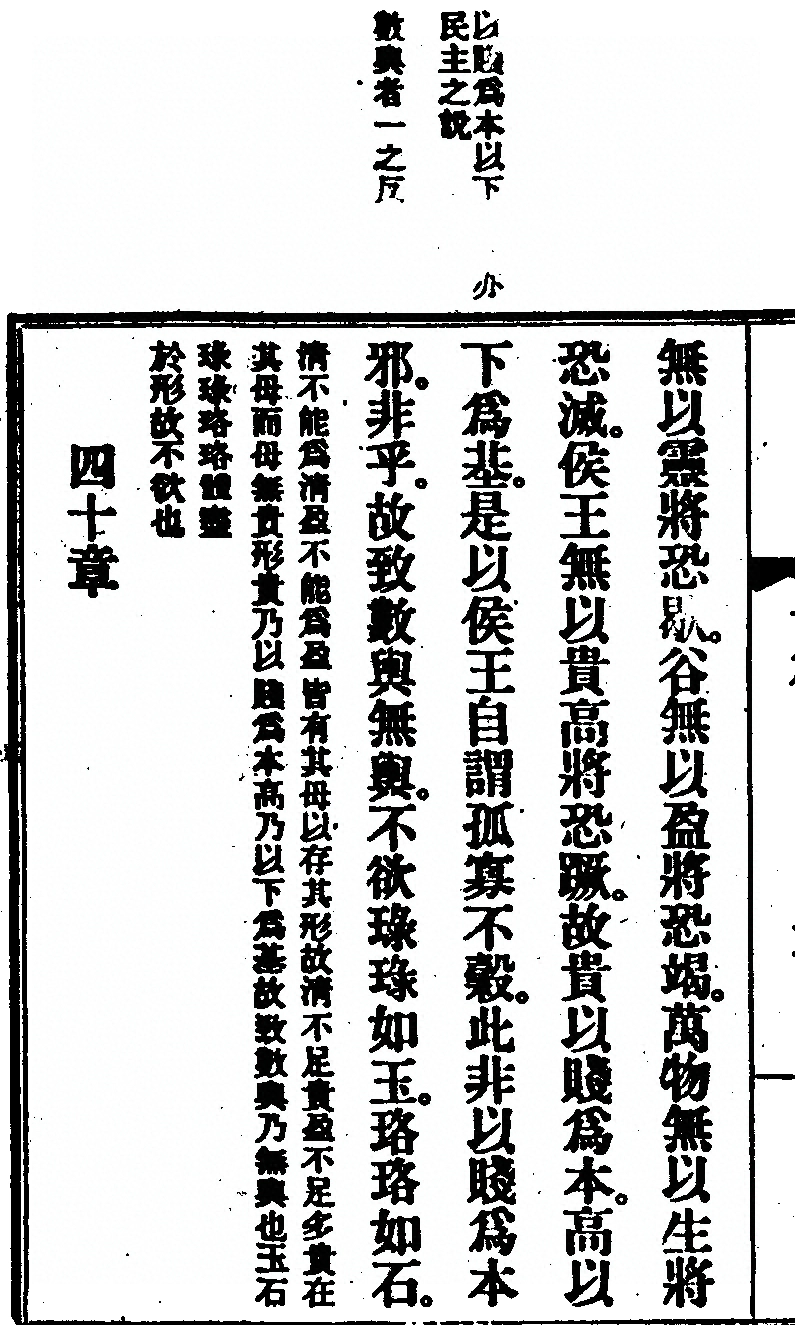 以賤爲本以下
民主之說
數輿者一之反
無以靈將恐歇。谷無以盈將恐竭。萬物無以生將
恐滅。侯王無以貴高將恐蹶。故貴以賤爲本。高以
下爲基。是以侯王自謂孤寡不穀。此非以賤爲本
邪。非乎。故致數輿無輿。不欲琭琭如玉。珞珞如石。
清不能爲清盈不能爲盈皆有其母以存其形故清不足貴盈不足多貴在
其母而母無貴形貴乃以賤爲本高乃以下爲基故致數輿乃無輿也玉石
琭琭珞珞體盡
於形故不欲也
四十章